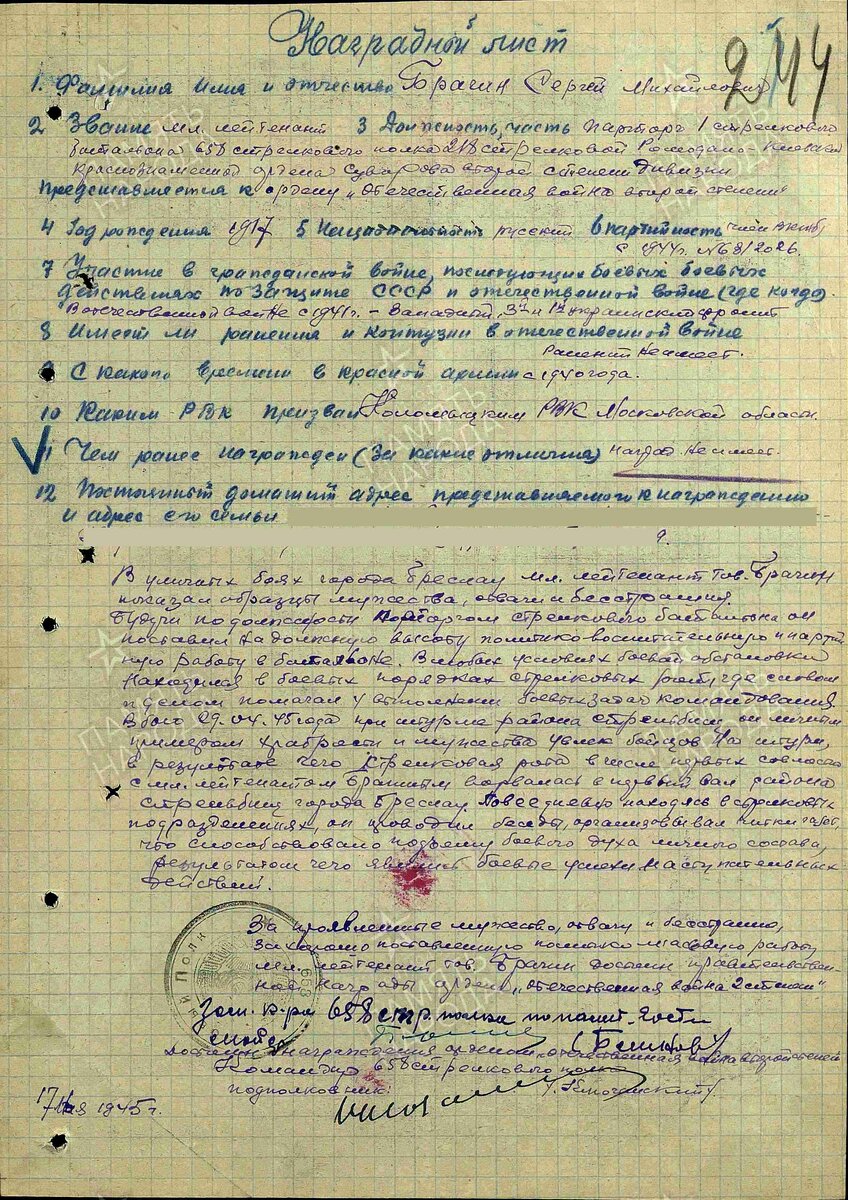 Наградной лист
244
1. Фамилия имя и отчество Брагин Сергей Михайлович
2 Звание мл. лейтенант 3 Должность, часть парторг 1 стрелкового
батальона 658 стрелкового полка 218 стрелковой Ромодано-Киевской
Краснознаменной ордена Суворова второй степени дивизии
Представляется к ордену „Отечественная война второй степени"
4 Год рождения 1917 5 Национальность русский 6 партийность член ВКП(б)
с 1944г. № 6812026
7 Участие в гражданской войне, последующих боевых боевых
действиях по защите СССР и отечественной войне (где когда)
В отечественной войне с 1941г. – Западный, 3й и 1й украинский фронт
8 Имеет ли ранения и контузии в отечественной войне
Ранений не имеет.
9 С какого времени в красной армии с 1940 года.
10 Каким РВК призван Коломыцким РВК Московской области.
11 Чем ранее награжден (За какие отличия) наград не имеет.
12 Постоянный домашний адрес представляемого к награждению
и адрес его семьи
В уличных боях города Бреслау мл. лейтенант тов. Брагин
показал образцы мужества, отваги и бесстрашия.
Будучи по должности парторгом стрелкового батальона он
поставил на должную высоту политико-воспитательную и партий
ную работу в батальоне. В любых условиях боевой обстановки
находился в боевых порядках стрелковых рот, где словом
и делом помогал у выполнении боевых задач командования
В бою 29.04.45 года при штурме района стрельбищ он личным
примером храбрости и мужества увлек бойцов на штурм,
в результате чего стрелковая рота в числе первых совместно
с мл. лейтенантом Брагиным ворвалась в первый вал района
стрельбищ города Бреслау. Повседневно находясь в стрелковых
подразделениях, он проводил беседы, организовывал читки газет,
что способствовало подъему боевого духа личного состава,
результатом чего являются боевые успехи наступательных
действий.
За проявленные мужество, отвагу и бесстрашие,
за хорошо поставленную политико-массовую работу
мл. лейтенант тов. Брагин достоин правительствен-
ной награды орден „Отечественная война 2 степени"
Зам. к-ра 658 стр. полка по полит. части
майор
Достоин награждения орденом „отечественная война второй степени
Командир 658 стрелкового полка
подполковник:
17 мая 1945 г.